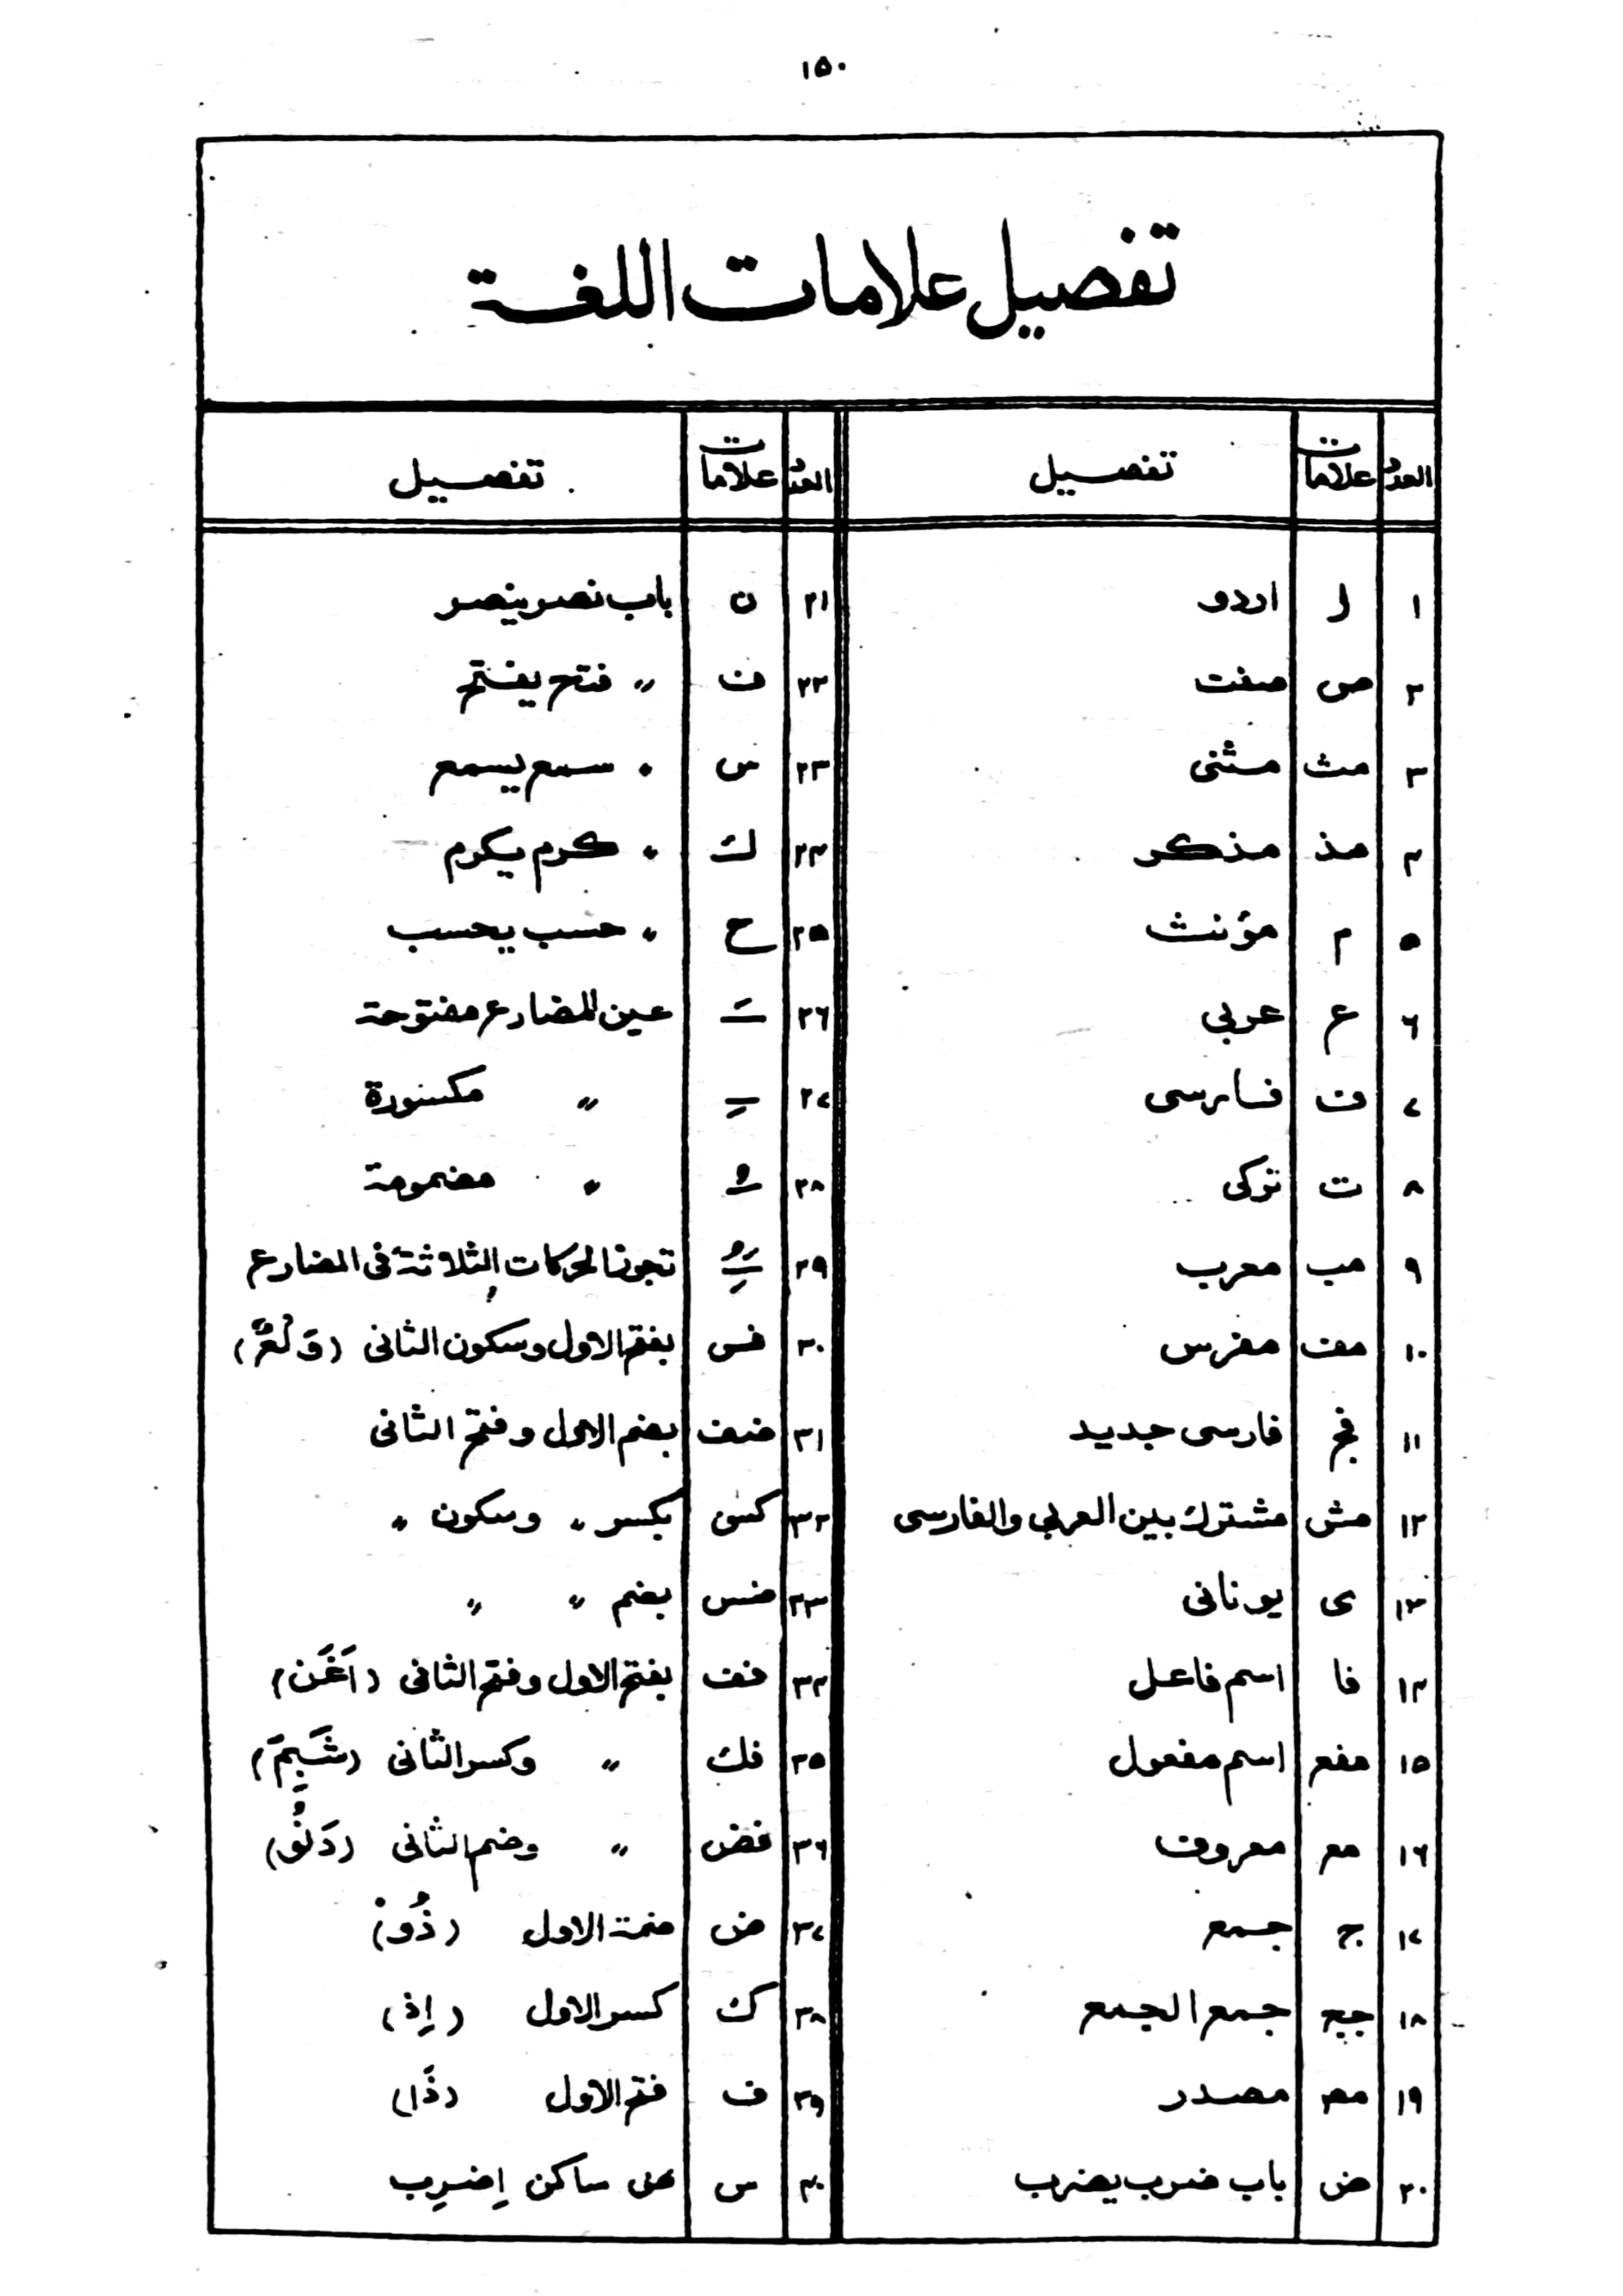 ١٥٠
تفصيل علامات اللغة
العدد علامات تفصيل العدد علامات تفصيل
١ ا اردو ٢١ ن باب نصر ينصر
٢ ص صفت ٢٢ ف 〃 فتح يفتح
٣ مث مثنى ٢٣ س 〃 سمع يسمع
٤ مذ مذكر ٢٤ ك 〃 كرم يكرم
٥ م مؤنث ٢٥ ح 〃 حسب يحسب
٦ ع عربي ٢٦ ـَ عين المضارع مفتوحة
٧ ف فارسى ٢٧ ـِ 〃 مكسورة
٨ ت تركى ٢٨ ـُ 〃 مضمومة
٩ مب معرب ٢٩ تجوز الحركات الثلاثة فى المضارع
١٠ مف مفرس ٣٠ فس بفتح الاول وسكون الثانى
١١ فج فارسى جديد ٣١ ضف بضم الاول وفتح الثانى
١٢ مش مشترك بين العربي والفارسى ٣٢ كس بكسر 〃 وسكون 〃
١٣ ى يونانى ٣٣ ضس بضم 〃 〃
١٤ فا اسم فاعل ٣٤ فف بفتح الاول وفتح الثانى (اَغَن)
١٥ مفع اسم مفعول ٣٥ فك 〃 وكسر الثانى (شَبِمَ)
١٦ مع معروف ٣٦ فض 〃 وضم الثانى
١٧ ج جمع ٣٧ ض ضمة الاول (ذُوْ)
١٨ جج جمع الجمع ٣٨ ك كسر الاول (اِذ)
١٩ مص مصدر ٣٩ ف فتح الاول (ذَا)
٢٠ ض باب ضرب يضرب ٤٠ س ساكن اِضرِب